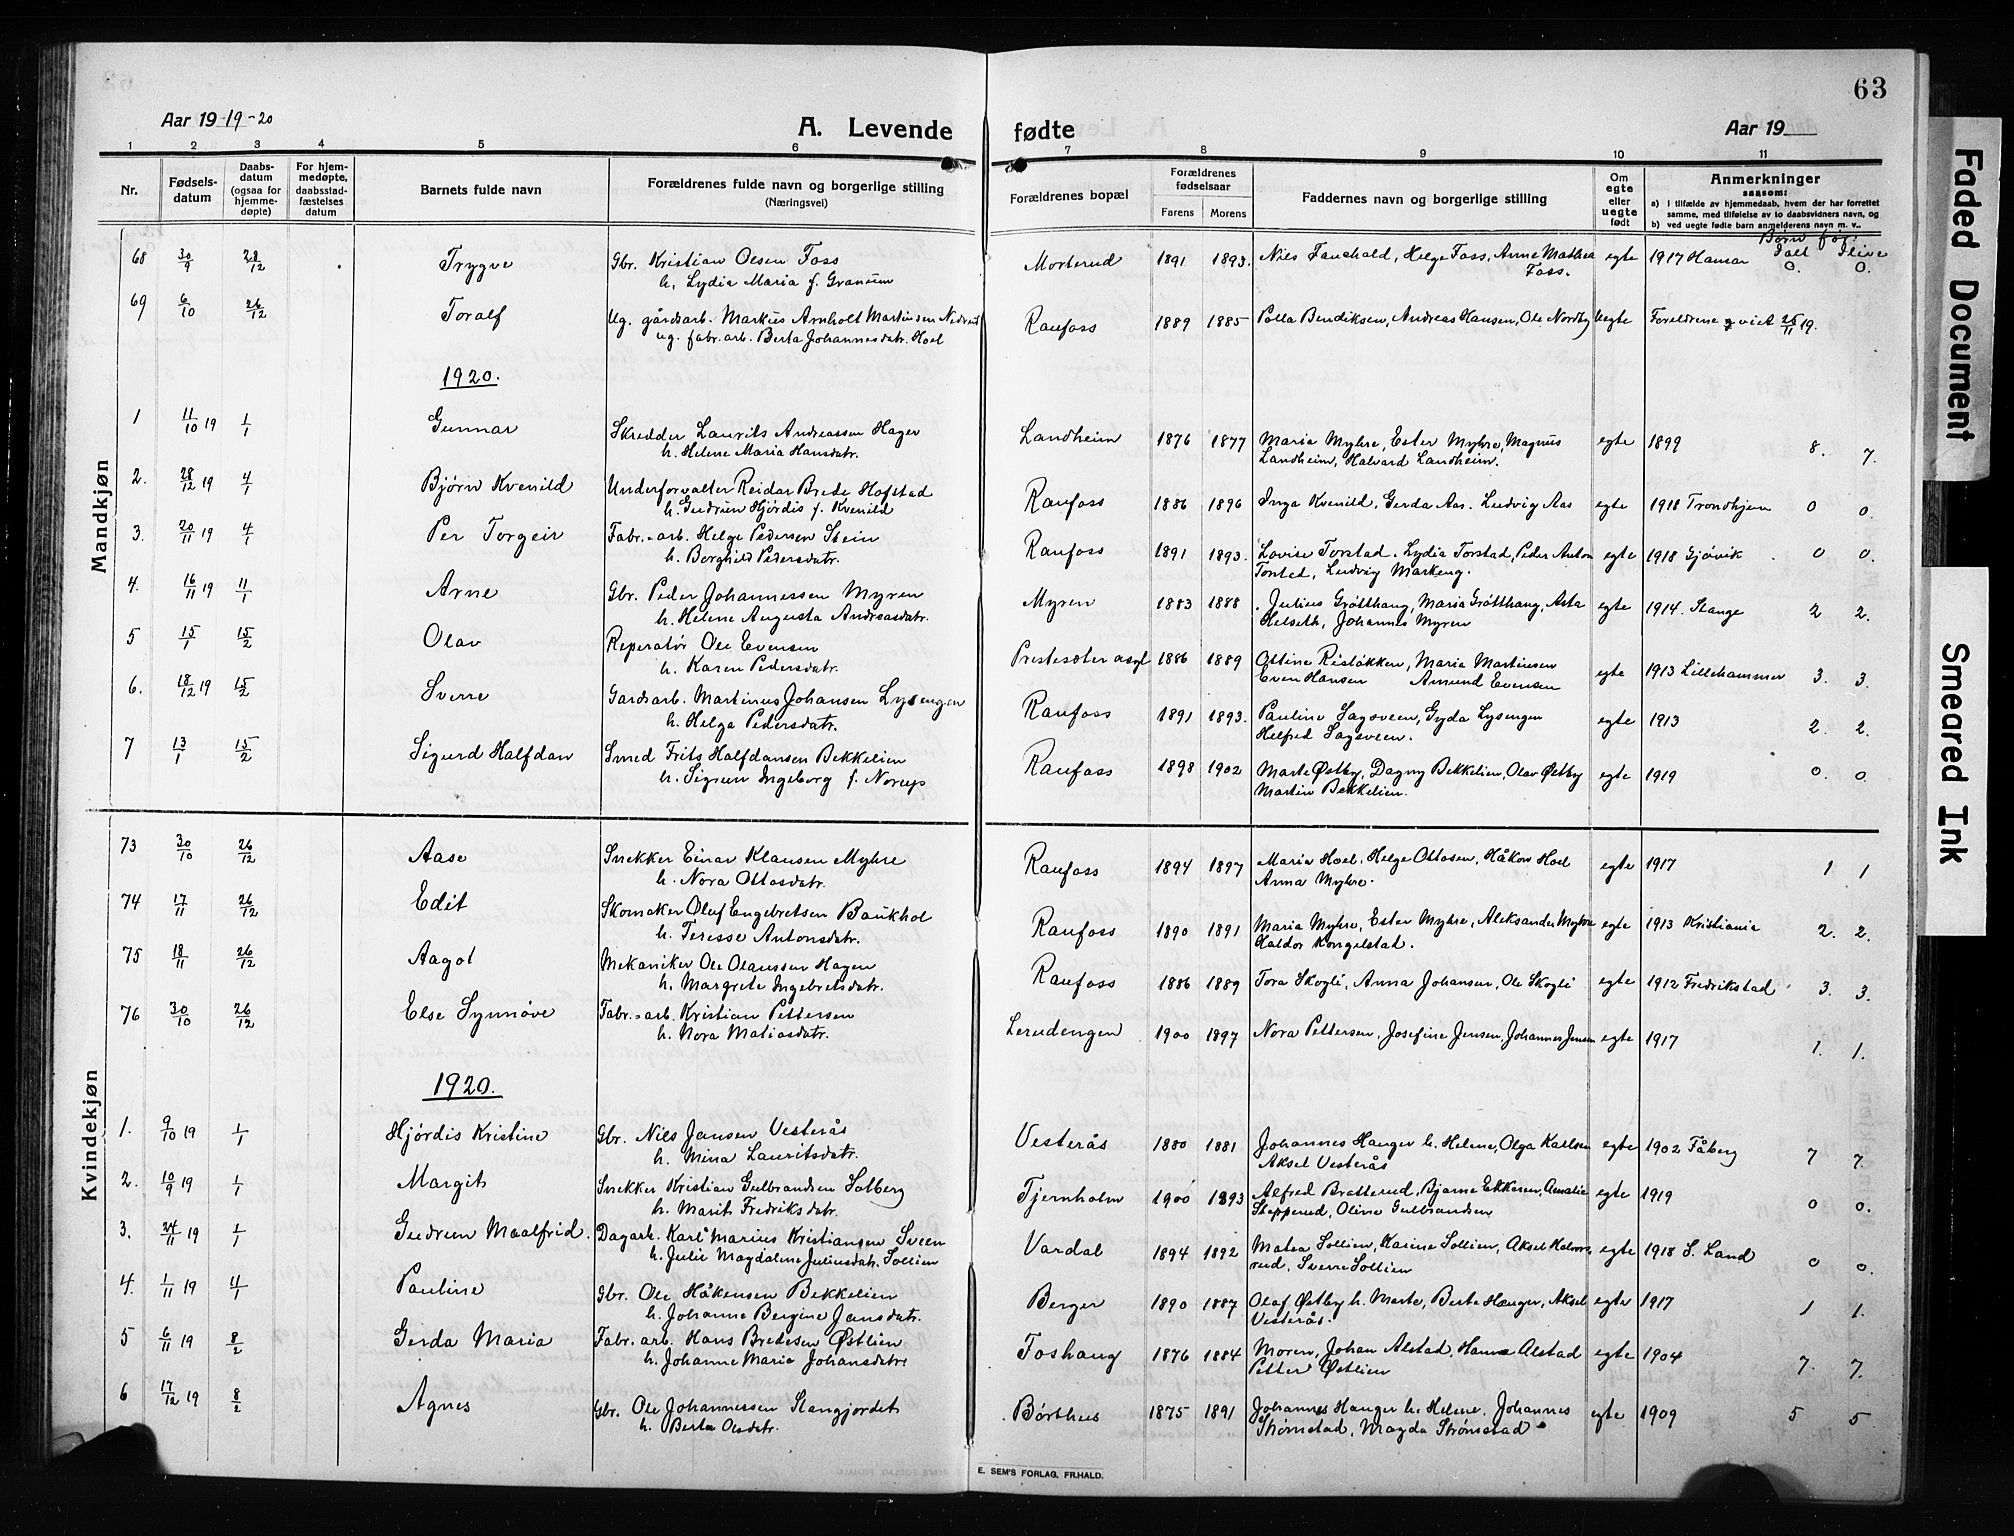 63
Aar 19 19-20
A. Levende
fødte
Aar 19
1 2 3 4 5 6 7 8 9 10 11
Nr.
Fødsels-
datum
Daabs-
datum
(ogsaa for
hjemme-
døpte)
For hjem-
medøpte,
daabsstad-
fæstelses
datum
Barnets fulde navn
Forældrenes fulde navn og borgerlige stilling
(Næringsvei)
Forældrenes bopæl
Forældrenes
fødselsaar
Farens Morens
Faddernes navn og borgerlige stilling
Om
egte
eller
uegte
født
Anmerkninger
saasom:
a) I tilfælde av hjemmedaab, hvem der har forrettet
samme, med tilføielse av to daabsvidners navn, og
b) ved uegte fødte barn anmelderens navn m. v.
Børn før:
Mandkjøn
68 30/9 28/12 Trygve Gbr. Kristian Olsen Foss Morterud 1891 1893. Nils Fauchald, Helge Foss, Anne Mathea egte 1917 Hamar Ialt Ilive
h. Lydia Maria f. Granum Foss. 0. 0.
69 6/10 26/12 Toralf Ug. gårdsarb. Markus Arnholt Martinsen Raufoss 1889 1885 Palla Bendiksen, Andreas Hansen, Ole Nordby Uegte Foreldrene viet 25/11 19.
ug. fabr. arb. Berta Johannesdatr. Hoel
1920.
1 11/10 19 1/1 Gunnar Skredder Laurits Andreassen Hager Landheim 1876 1877 Maria Myhre, Ester Myhre, Magnus egte 1899 8. 7.
h. Helene Maria Hansdatr. Landheim, Halvard Landheim.
2. 28/12 19 4/1 Bjørn Kvenild Underforvalter Reidar Brede Hofstad Raufoss 1886 1896 Inga Kvenild, Gerda Aas. Ludvig Aas egte 1918 Trondhjem 0 0.
h. Gudrun Hjördis f. Kvenild
3. 20/11 19 4/1 Per Torgeir Fabr.-arb. Helge Pedersen Stein Raufoss 1891 1893. Lovise Torstad. Lydia Torstad, Peder Anton egte 1918 Gjøvik 0 0.
h. Borghild Pedersdatr. Torsted, Ludvig Markeng.
4. 16/11 19 11/1 Arne Gbr. Peder Johannessen Myren Myren 1883 1888 Julius Gråtthaug, Maria Gråtthaug, Asta egte 1914. Stange 2 2.
h. Helene Augusta Andreasdatr. Helseth, Johannes Myren
5 15/1 15/2 Olav Reperatør Ole Evensen Prestesæter asyl 1886 1889 Ottine Risløkken, Maria Martinsen egte 1913 Lillehammer 3. 3.
h. Karen Pedersdatr. Even Hansen Amund Evensen
6. 18/12 19 15/2 Sverre Gardsarb. Martinus Johansen Lysengen Raufoss 1891 1893. Pauline Sagsveen, Gyda Lysengen egte 1913 2. 2.
h. Helga Pedersdatr. Helfred Sagsveen.
7 13/1 15/2 Sigurd Halfdan Smed Frits Halfdansen Bekkelien Raufoss 1898 1902 Marte Østby, Dagny Bekkelien, Olav Østby egte 1919 0. 0.
h. Sigrun Ingeborg f. Norup Martin Bekkelien.
Kvindekjøn
73 30/10 26/12 Aase Snekker Einar Klausen Myhre Raufoss 1894 1897 Maria Hoel, Helge Ottosen, Håkon Hoel egte 1917 1 1
h. Nora Ottosdatr. Anna Myhre.
74 17/11 26/12 Edit Skomaker Oluf Engebretsen Baukhol Raufoss 1890 1891 Maria Myhre, Ester Myhre, Aleksander Myhre egte 1913 Kristiania 2. 2.
h. Teresse Antonsdatr. Haldor Kongelstad.
75 18/11 26/12 Aagot Mekaniker Ole Olaussen Hagen Raufoss 1886 1889 Tora Skogli, Anna Johansen, Ole Skogli egte 1912 Fredrikstad 3. 3.
h. Margrete Ingebretsdatr.
76 30/10 26/12 Else Synnøve Fabr.-arb. Kristian Pettersen Lerudengen 1900 1897 Nora Pettersen, Josefine Jensen, Johannes Jensen egte 1917 1. 1.
h. Nora Matiasdatr.
1920.
1. 9/10 19 1/1 Hjørdis Kristine Gbr. Nils Jansen Vesterås Vesterås 1880 1881 Johannes Hanger h. Helene, Olga Karlsen egte 1902 Fåberg 7 7.
h. Mina Lauritsdatr. Aksel Vesterås
2. 10/9 19 1/1 Margit Snekker Kristian Gulbrandsen Solberg Tjernholm 1900 1893 Alfred Bratterud, Bjarne Ekkeren, Amalie egte 1919 0 0.
h. Marit Fredriksdatr. Stepperud, Oline Gulbrandsen
3. 24/11 19 1/1 Gudrun Maalfrid. Dagarb. Karl Marius Kristiansen Sveen Vardal 1894 1892 Matea Sollien, Karine Sollien, Aksel Halvors- egte 1918 S. Land 0 0.
h. Julie Magdalene Juliusdatr. Sollien rud, Sverre Sollien
4. 1/11 19 4/1 Pauline Gbr. Ole Håkensen Bekkelien Berger 1890 1887 Olaf Østby h. Marte, Berta Hanger, Aksel egte 1917 1 1.
h. Johanne Bergine Jansdatr. Vesterås.
5 6/11 19 8/2 Gerda Maria Fabr. arb. Hans Bredesen Østlien Foshaug 1876 1884 Moren, Johan Alstad, Hanna Alstad egte 1904 7. 7.
h. Johanne Maria Johansdatr. Petter Østlien
6 17/12 19 8/2 Agnes Gbr. Ole Johannessen Stangjordet Børthus 1875 1891 Johannes Hanger h. Helene. Johannes egte 1909 5 5
h. Berte Olsdatr. Strømstad, Magda Strømstad
E. SEM'S FORLAG, FR.HALD.
Faded Document
Smeared Ink